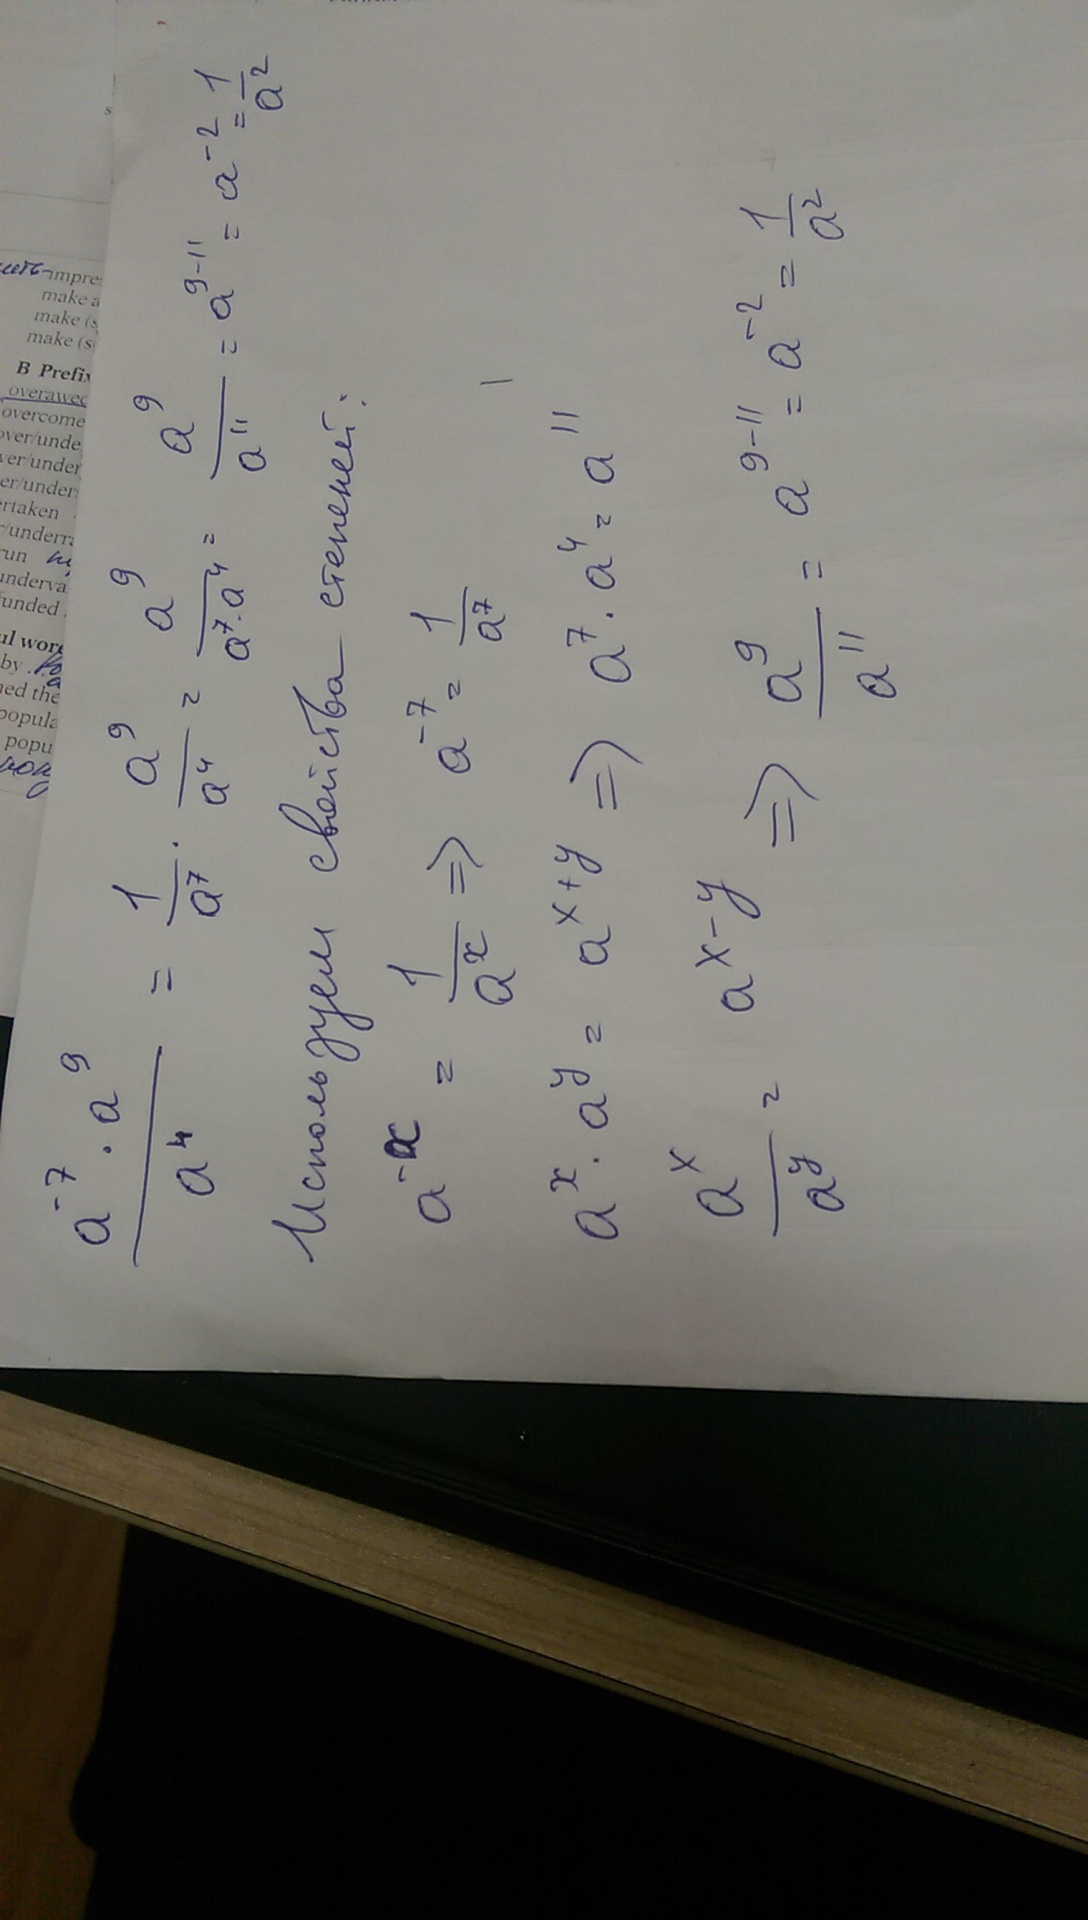 a⁻⁷ · a⁹ / a⁴ = 1/a⁷ · a⁹/a⁴ = a⁹/(a⁷·a⁴) = a⁹/a¹¹ = a⁹⁻¹¹ = a⁻² = 1/a²
Используем свойства степеней:
a⁻ˣ = 1/aˣ => a⁻⁷ = 1/a⁷
aˣ · aʸ = aˣ⁺ʸ => a⁷ · a⁴ = a¹¹
aˣ/aʸ = aˣ⁻ʸ => a⁹/a¹¹ = a⁹⁻¹¹ = a⁻² = 1/a²
make a
make (s
make (s
B Prefix
overawed
overcome
over/unde
er/under
er/under
ertaken
/underra
run
underva
funded
ul wor
by
ned the
popula
popu